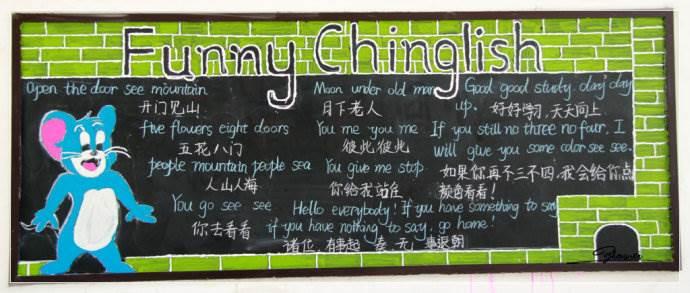 Funny Chinglish
Open the door see mountain
开门见山
five flowers eight doors
五花八门
people mountain people sea
人山人海
You go see see
你去看看
Moon under old man
月下老人
You me you me
彼此彼此
You give me stop
你给我站住
Good good study, day day
up. 好好学习,天天向上
If you still no three no four, I
will give you some color see see.
如果你再不三不四,我会给你点
颜色看看!
Hello everybody! If you have something to say
if you have nothing to say, go home!
诸位,有事起奏,无事退朝